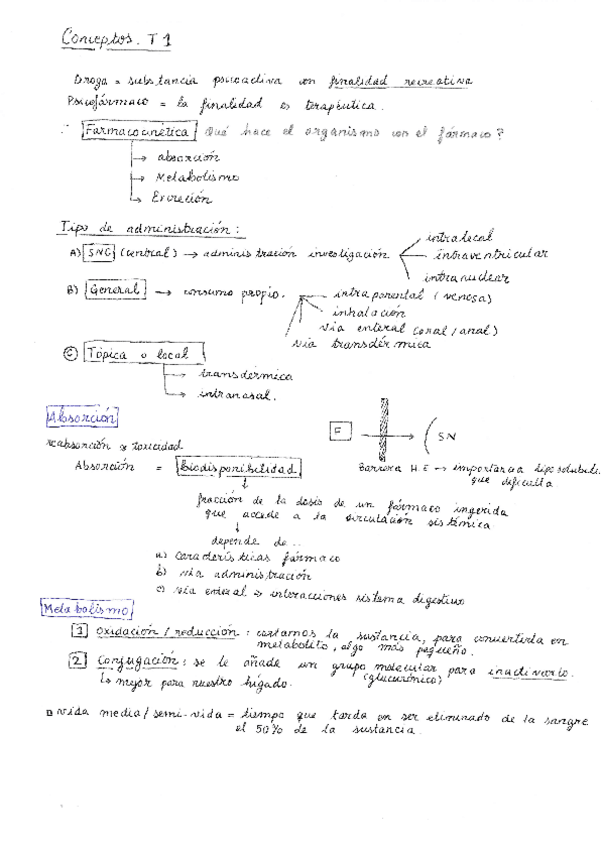 Conceptos. T1
Droga = substancia psicoactiva con finalidad recreativa
Psicofármaco = la finalidad es terapéutica.
Farmacocinética Qué hace el organismo con el fármaco?
→ absorción
→ Metabolismo
→ Excreción
Tipo de administración:
A) SNC (central) → administración investigación
intratecal
intraventricular
intranuclear
B) General → consumo propio.
intraparental (venosa)
inhalación
via enteral (oral / anal)
via transdérmica
C Tópica o local
→ transdérmica
→ intranasal.
Absorción
F
SN
reabsorción toxicidad
Barrera H.E → importancia liposolubili
que dificulta
Absorción = biodisponibilidad
fracción de la dosis de un fármaco ingerida
que accede a la circulación sistémica
depende de..
a) características fármaco
b) via administración
c) via enteral → interacciones sistema digestivo
Metabolismo
1 Oxidación / reducción: cortamos la sustancia, para convertirla en
metabolito, algo más pequeño.
2 Conjugación: se le añade un grupo molecular para inactivarlo.
(glucurónico)
mejor para nuestro hígado.
vida media / semi-vida = tiempo que tarda en ser eliminado de la sangre
el 50% de la sustancia.